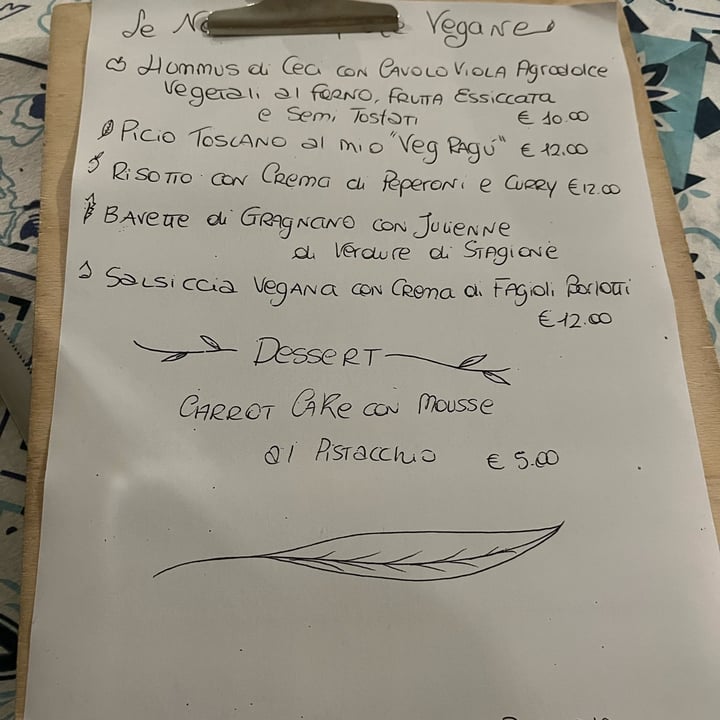 Le No Vegane
Hummus di Ceci con Cavolo Viola Agrodolce
Vegetali al Forno, Frutta Essiccata
e Semi Tostati € 10.00
Picio Toscano al mio "Veg Ragù" € 12.00
Risotto con Crema di Peperoni e Curry € 12.00
Bavette di Gragnano con Julienne
di Verdure di Stagione
Salsiccia Vegana con Crema di Fagioli Borlotti
€ 12.00
Dessert
Carrot Cake con Mousse
ai Pistacchio € 5.00